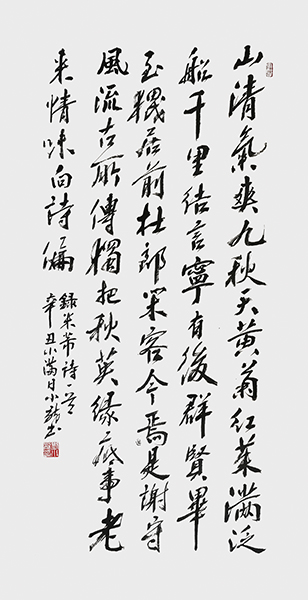 山清氣爽九秋天黄菊红茱滿泛
船千里结言寧有後群賢畢
至猥居前杜郎閑客今焉是謝守
風流古所傳獨把秋英緣底事老
来情味向詩偏
録米芾詩一首
辛丑小滿日小书